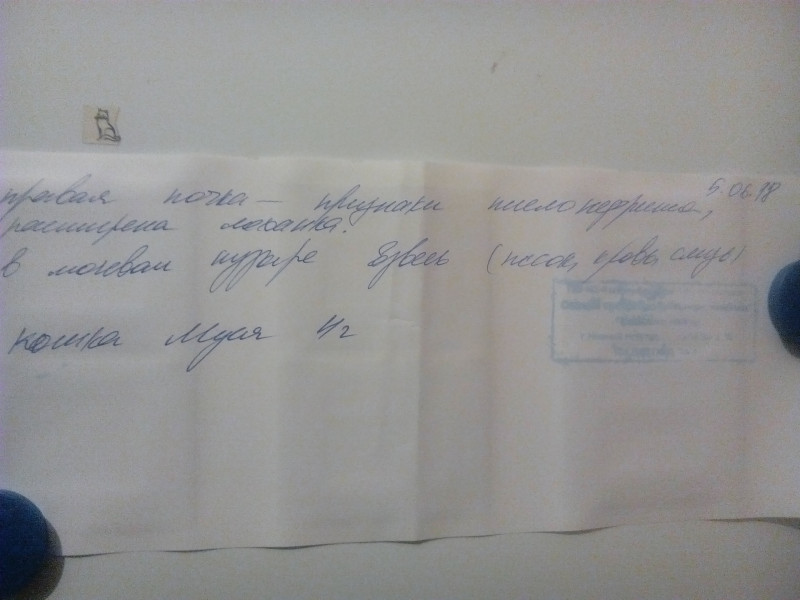 5.06.18
правая почка – признаки пиелонефрита,
расширена лоханка.
в мочевом пузыре взвесь (песок, кровь, слизь)
кошка Муся 4 г